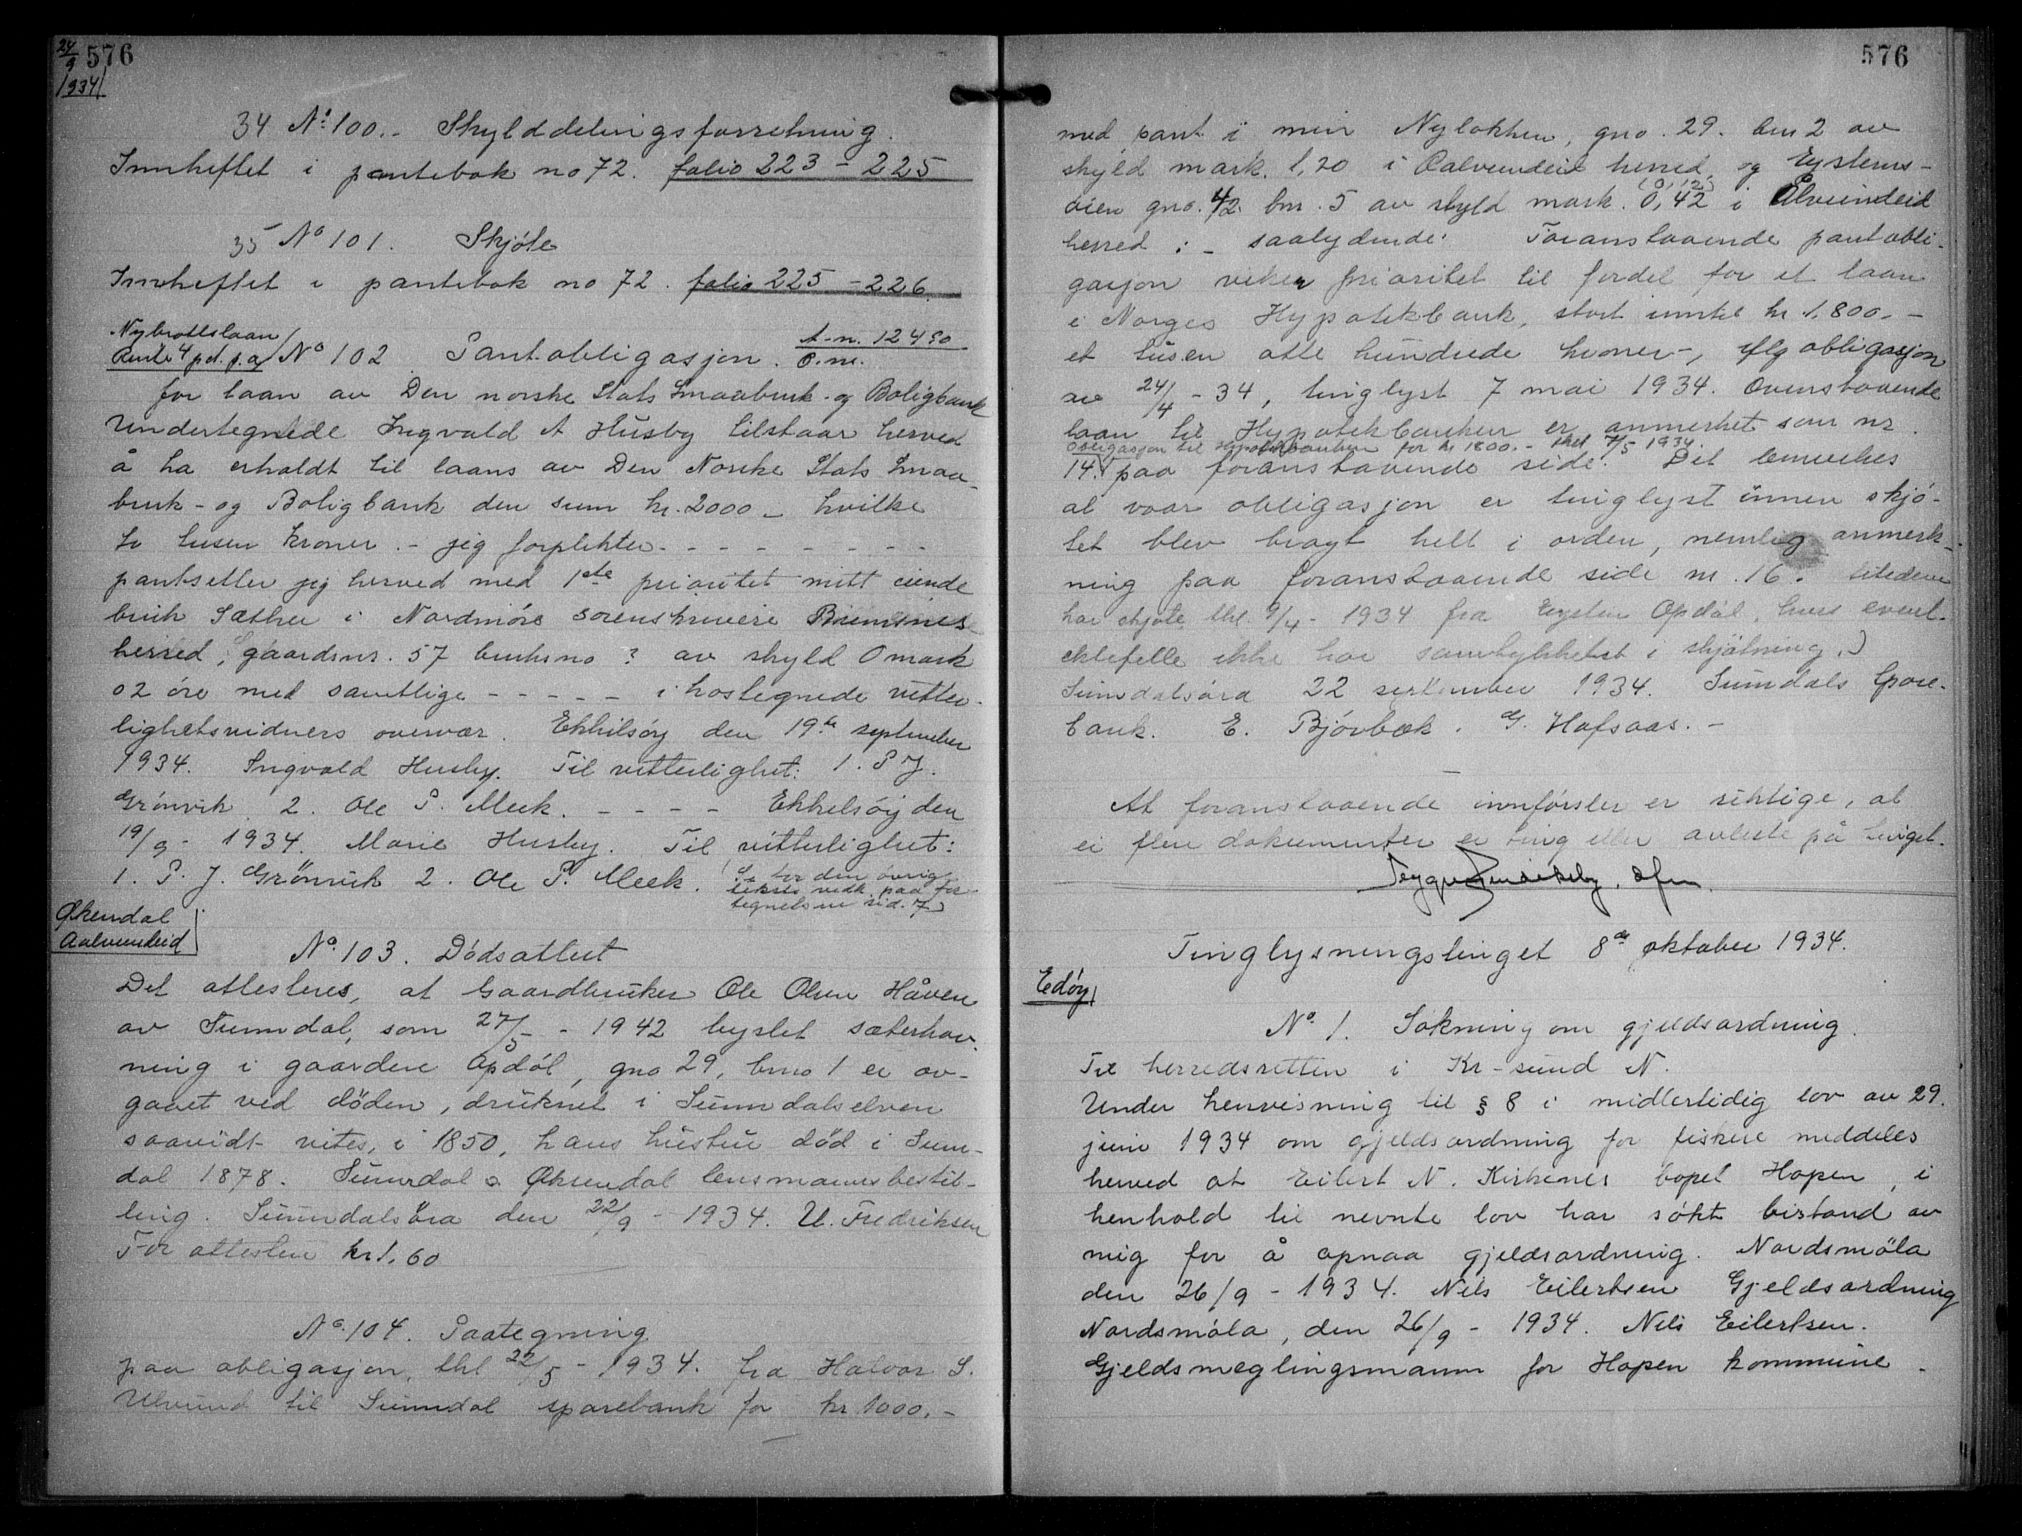 24/9 1934
576
34 No 100.- Skylddelingsforretning.
Innheftet i pantebok no 72. folio 223 - 225
35 No 101. Skjøte
Innheftet i pantebok no 72. folio 225 - 226.
Nybrottslaan
Rente 4 pct. p.a. No 102 Pantobligasjon.
for laan av Den norske Stats Smaabruk- og Boligbank
Undertegnede Ingvald A Husby tilstaar herved
å ha erholdt til laans av Den Norske Stats Smaa-
bruk- og Boligbank den sum kr. 2000 - hvilke
to tusen kroner.- jeg forplikter - - - - - - -
pantsetter jeg herved med 1ste prioritet mitt eiende
bruk Sæther i Nordmøre sorenskriveri Bremsnes
herred, gaardsnr. 57 bruksno ? av skyld 0 mark
02 øre med samtlige - - - - - i hostegnede vitter-
lighetsvidners overvær. Ekkilsøy den 19de september
1934. Ingvald Husby. Til vitterlighet: 1. P J.
Grønvik 2. Ole P. Meek. - - - - Ekkelsøy den
19/9 - 1934. Marie Husby. Til vitterlighet:
1. P. J. Grønvik 2. Ole P. Meek. (Se for den øvrige
teksts vedk. paa for-
tegnelsen sid. 7)
Øksendal
Aalvundeid
No 103. Dødsattest
Det attesteres, at Gaardbruker Ole Olsen Håven
av Sunndal, som 27/5 - 1942 lyslet sæterhav-
ning i gaarden Opdøl, gno 29, bno 1 er av-
gaaet ved døden, druknet i Sunndalselven
saavidt vites, i 1850, hans hustru død i Sunn-
dal 1878. Sunndal o Øksendal lensmannsbestil-
ling. Sunndalsøra den 22/9 - 1934. U. Fredriksen
For attesten kr 1,60
No 104. Paategning
paa obligasjon, thl 22/5 - 1934. fra Halvor S.
Ulvund til Sunndal sparebank for kr 1000.-
576
med pant i min Nyløkken, gno. 29. bno 2 av
skyld mark. 1,20 i Aalvundeid herred, og Eystens-
(0,12)
øien gno. 42. bnr. 5 av skyld mark. 0,42 i Ålvundeid
herred :- saalydende: Foranstaaende pantobli-
gasjon viker prioritet til fordel for et laan
i Norges Hypotekbank, stort inntil kr 1.800.-
et tusen otte hundrede kroner-, iflg obligasjon
av 24/4 - 34, tinglyst 7 mai 1934. Ovenstaaende
laan til Hypotekbanken er anmerket som nr.
Obligasjon til Hypotekbanken for kr 1800.- thl 7/5 1934.
14. paa foranstaaende side. Det bemerkes
at vaar obligasjon er tinglyst innen skjø-
tet blev bragt helt i orden, nemlig anmerk-
ning paa foranstaaende side nr. 16.
har skjøte thl. 9/4 - 1934 fra Eysten Opdøl, hvis event.
ektefelle ikke har samtykket i skjøtning.)
Sunndalsøra 22 september 1934. Sunndals Spare-
bank. E. Bjørbæk. G. Hafsaas.-
At foranstaaende innførsler er riktige, at
ei flere dokumenter er ting eller avleste på tinget.
Tinglysningstinget 8de oktober 1934.
Edøy
No 1. Søkning om gjeldsordning.
Til herredsretten i Kr-sund N.
Under henvisning til § 8 i midlertidig lov av 29.
juni 1934 om gjeldsordning for fiskere meddeles
herved at Eilert N. Kirkenes bopel Hopen, i
henhold til nevnte lov har søkt bistand av
mig for å opnaa gjeldsordning. Nordsmøla
den 26/9 - 1934. Nils Eilertsen Gjeldsordning
Nordsmøla, den 26/9 - 1934. Nils Eilertsen.
Gjeldsmeglingsmann for Hopen kommune.